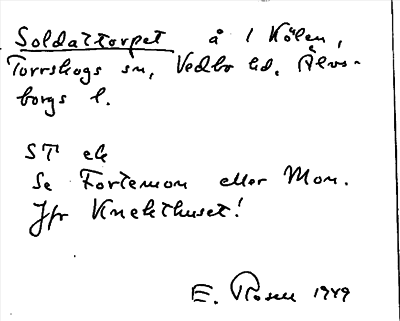 Soldattorpet å 1 Kölen,
Torrskogs sn, Vedbo hd. Älvs-
borgs l.
ST ek
Se Fortemon eller Mon.
Jfr Knekthuset!
E. Rosell 1949